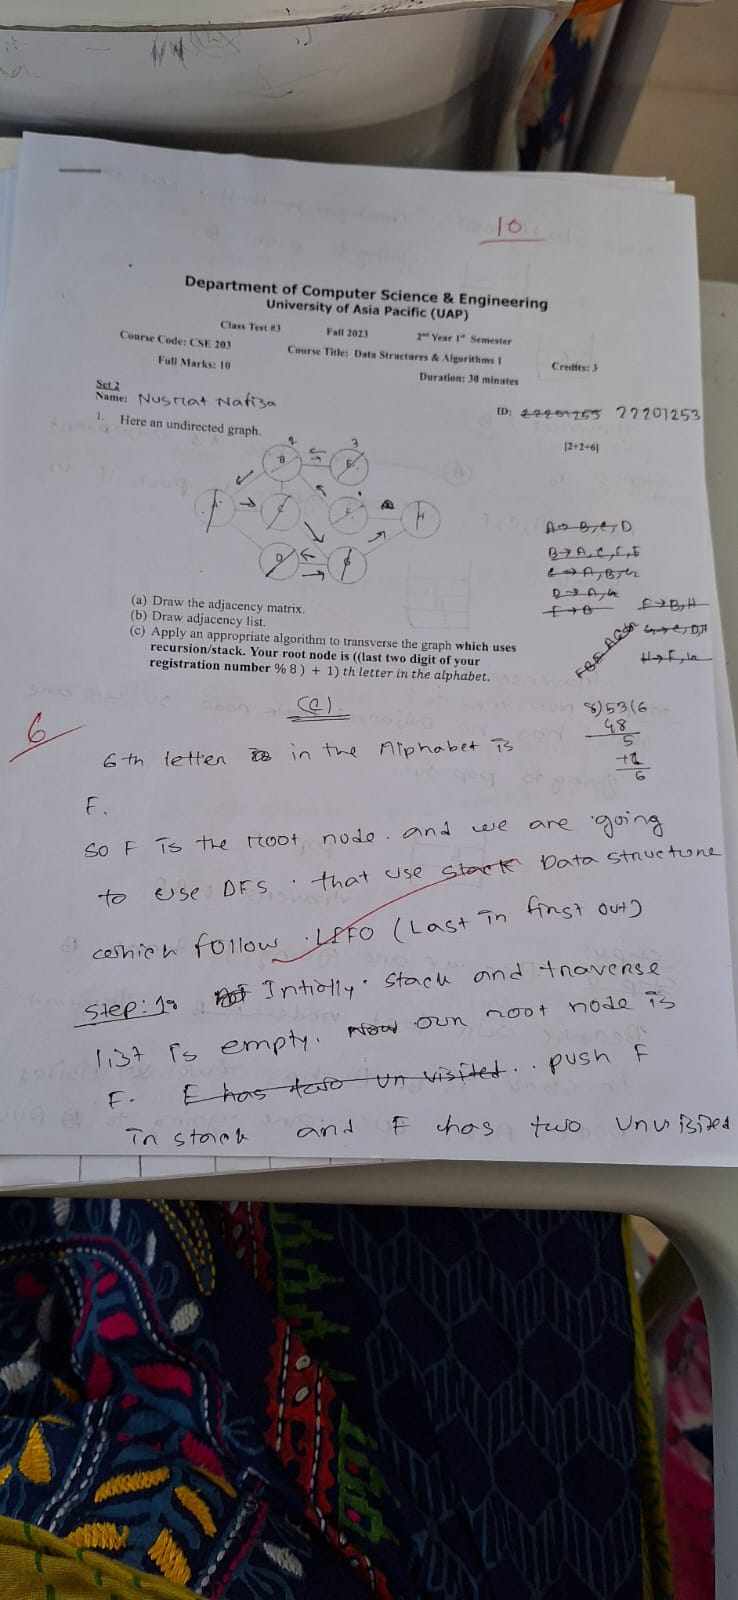 10
Department of Computer Science & Engineering
University of Asia Pacific (UAP)
Class Test #3 Fall 2023 2nd Year 1st Semester
Course Code: CSE 203 Course Title: Data Structures & Algorithms I Credits: 3
Full Marks: 10 Duration: 30 minutes
Set 2
Name: Nusrat Nafisa ID: 22201255 22201253
1. Here an undirected graph. [2+2+6]
B 3
H
A→ B,C,D
B→ A,C,F,E
C→ A,B,G
D→ A,G
E→B F→B,H
G→C,D,H
H→F,G
(a) Draw the adjacency matrix.
(b) Draw adjacency list.
(c) Apply an appropriate algorithm to transverse the graph which uses
recursion/stack. Your root node is ((last two digit of your
registration number % 8 ) + 1) th letter in the alphabet.
(c)
8)53(6
48
5
+1
6
6
6th letter in the Alphabet is
F.
so F is the root node. and we are going
to use DFS. that use stack Data structure
which follow LIFO (Last in first out)
Step:1: Intially stack and traverse
list is empty. Now our root node is
F. E has two un visited.. push F
in stack and F has two unvisited